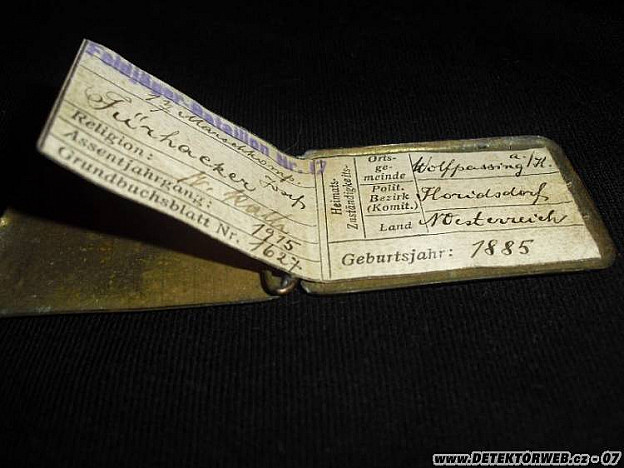 Feldjäger-Bataillon Nr. 17
Marschkomp.
Fürhacker
Religion:
Assentjahrgang: 1915
Grundbuchsblatt Nr. 1627
Heimats-
Zuständigkeits-
Ortsgemeinde Wolfpassing a/H.
Polit. Bezirk (Komit.) Floridsdorf
Land NÖsterreich
Geburtsjahr: 1885
www.DETEKTORWEB.cz - 07